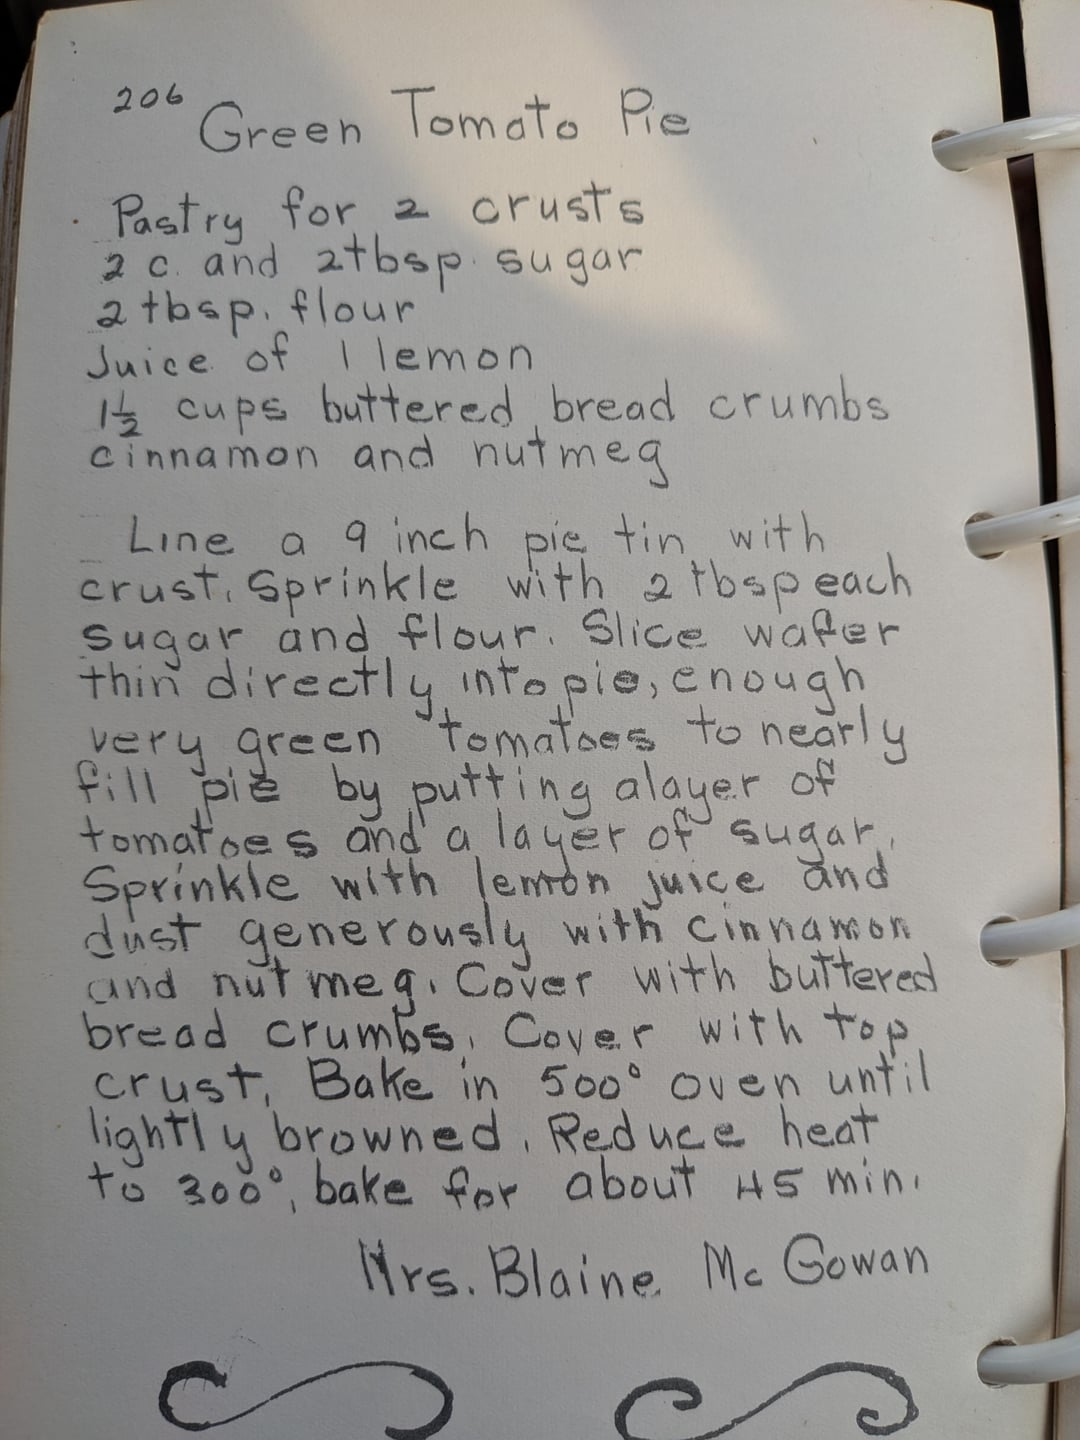 206
Green Tomato Pie
Pastry for 2 crusts
2 c. and 2 tbsp. sugar
2 tbsp. flour
Juice of 1 lemon
1½ cups buttered bread crumbs
cinnamon and nutmeg
Line a 9 inch pie tin with
crust. Sprinkle with 2 tbsp each
sugar and flour. Slice wafer
thin directly into pie, enough
very green tomatoes to nearly
fill pie by putting a layer of
tomatoes and a layer of sugar.
Sprinkle with lemon juice and
dust generously with cinnamon
and nutmeg. Cover with buttered
bread crumbs. Cover with top
crust. Bake in 500° oven until
lightly browned. Reduce heat
to 300°, bake for about 45 min.
Mrs. Blaine Mc Gowan